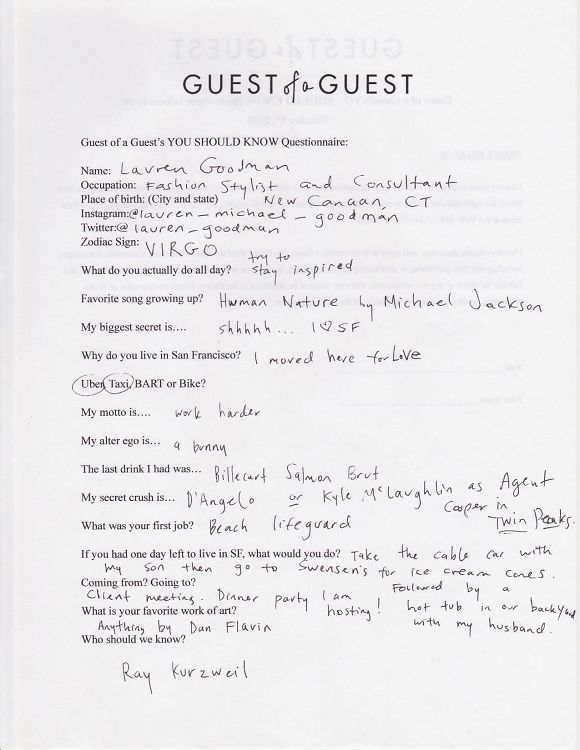 GUEST of a GUEST
Guest of a Guest's YOU SHOULD KNOW Questionnaire:
Name: Lauren Goodman
Occupation: Fashion Stylist and Consultant
Place of birth: (City and state) New Canaan, CT
Instagram:@lauren_michael_goodman
Twitter:@lauren_goodman
Zodiac Sign: VIRGO
What do you actually do all day? try to stay inspired
Favorite song growing up? Human Nature by Michael Jackson
My biggest secret is.... shhhhh... I ♡ SF
Why do you live in San Francisco? I moved here for Love
Uber, Taxi, BART or Bike?
My motto is.... work harder
My alter ego is... a bunny
The last drink I had was... Billecart Salmon Brut
My secret crush is... D'Angelo or Kyle McLaughlin as Agent
Cooper in
Twin Peaks.
What was your first job? Beach lifeguard
If you had one day left to live in SF, what would you do? Take the cable car with
my son then go to Swensen's for ice cream cones.
Followed by a
hot tub in our backyard
with my husband.
Coming from? Going to?
Client meeting. Dinner party I am
hosting!
What is your favorite work of art?
Anything by Dan Flavin
Who should we know?
Ray Kurzweil